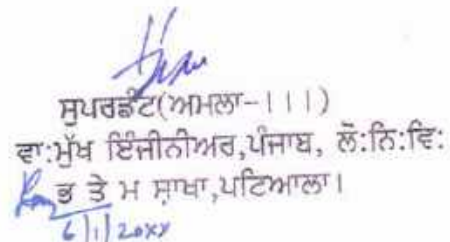 ਸੁਪਰਡੰਟ(ਅਮਲਾ-|||)
ਵਾ:ਮੁੱਖ ਇੰਜੀਨੀਅਰ,ਪੰਜਾਬ, ਲੋ:ਨਿ:ਵਿ:
ਭ ਤੇ ਮ ਸ਼ਾਖਾ,ਪਟਿਆਲਾ।
6/1/20XX